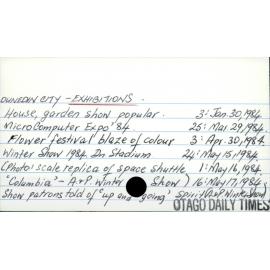 DUNEDIN CITY - EXHIBITIONS.
House, garden show popular. 3: Jan. 30, 1984
MicroComputer Expo '84. 25: Mar. 29, 1984.
Flower festival blaze of colour 3: Apr. 30, 1984.
Winter Show 1984. Dn Stadium 24: May 15, 1984.
(Photo: scale replica of space shuttle 1: May 16, 1984
"Columbia" - A & P Winter Show) 16: May 17, 1984
Show patrons told of "up and going" spirit (A&P Winter Show)
OTAGO DAILY TIMES